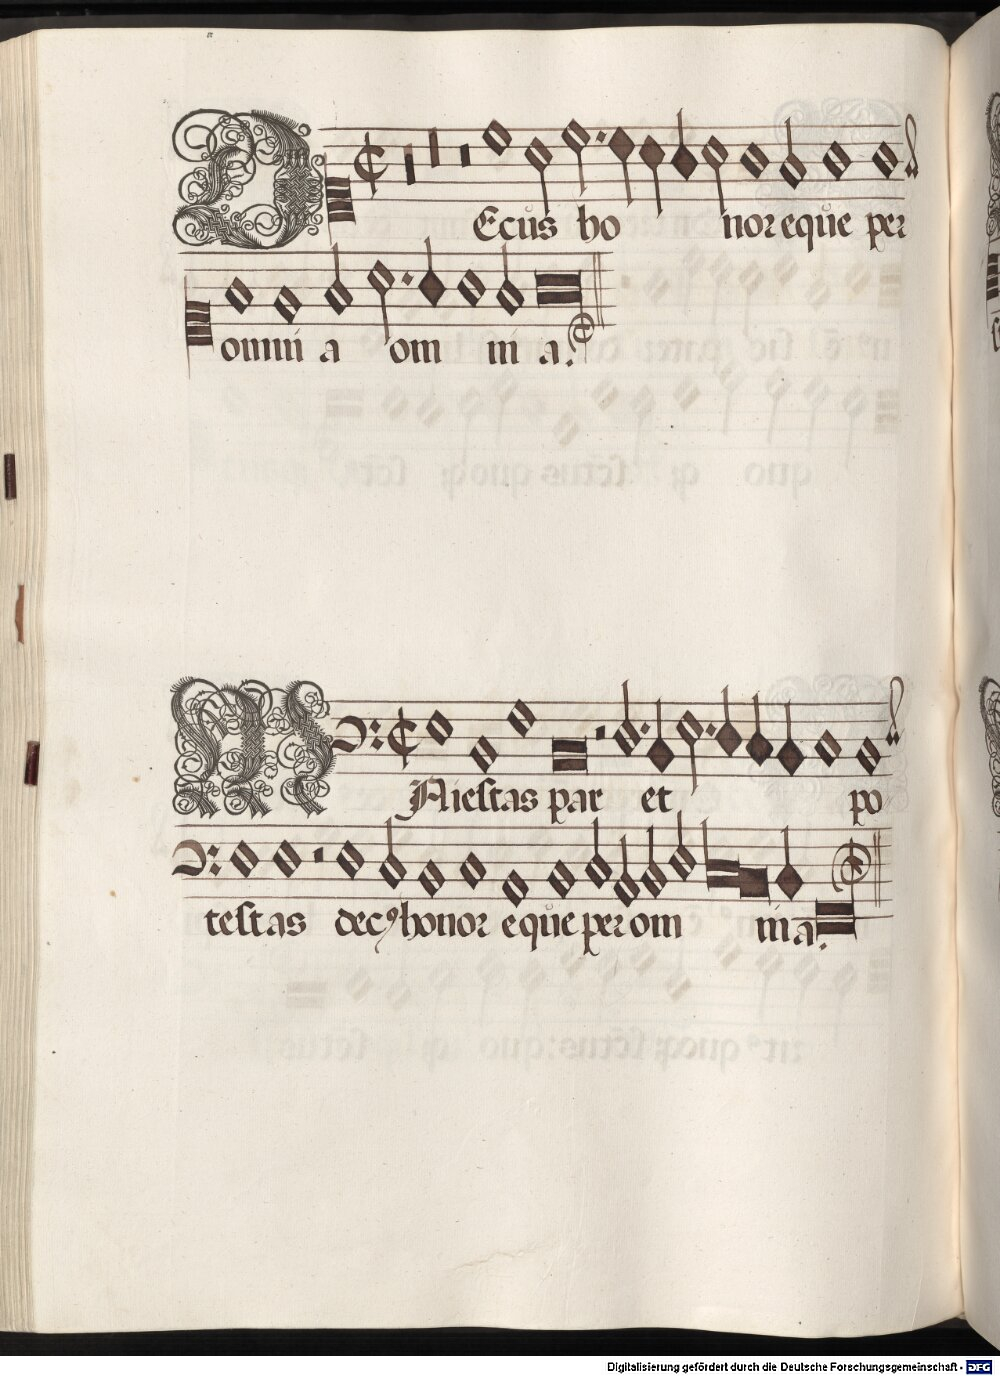 D Ecus ho noreque per
omni a om ni a.
M Aiestas par et po
testas decꝰ honor eque per om nia.
Digitalisierung gefördert durch die Deutsche Forschungsgemeinschaft - DFG